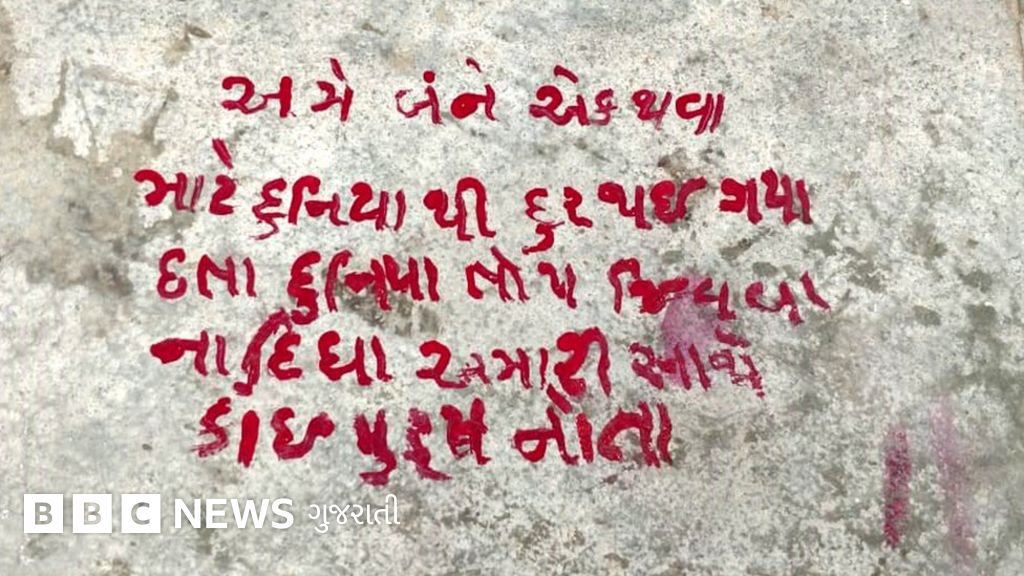 અમે બંને એક થવા
માટે દુનિયા થી દુર થઈ ગયા
હતા દુનિયા તોય જિવવા
ના દિધા અમારી સાથે
કોઈ પુરૂષ નોતા
BBC NEWS ગુજરાતી